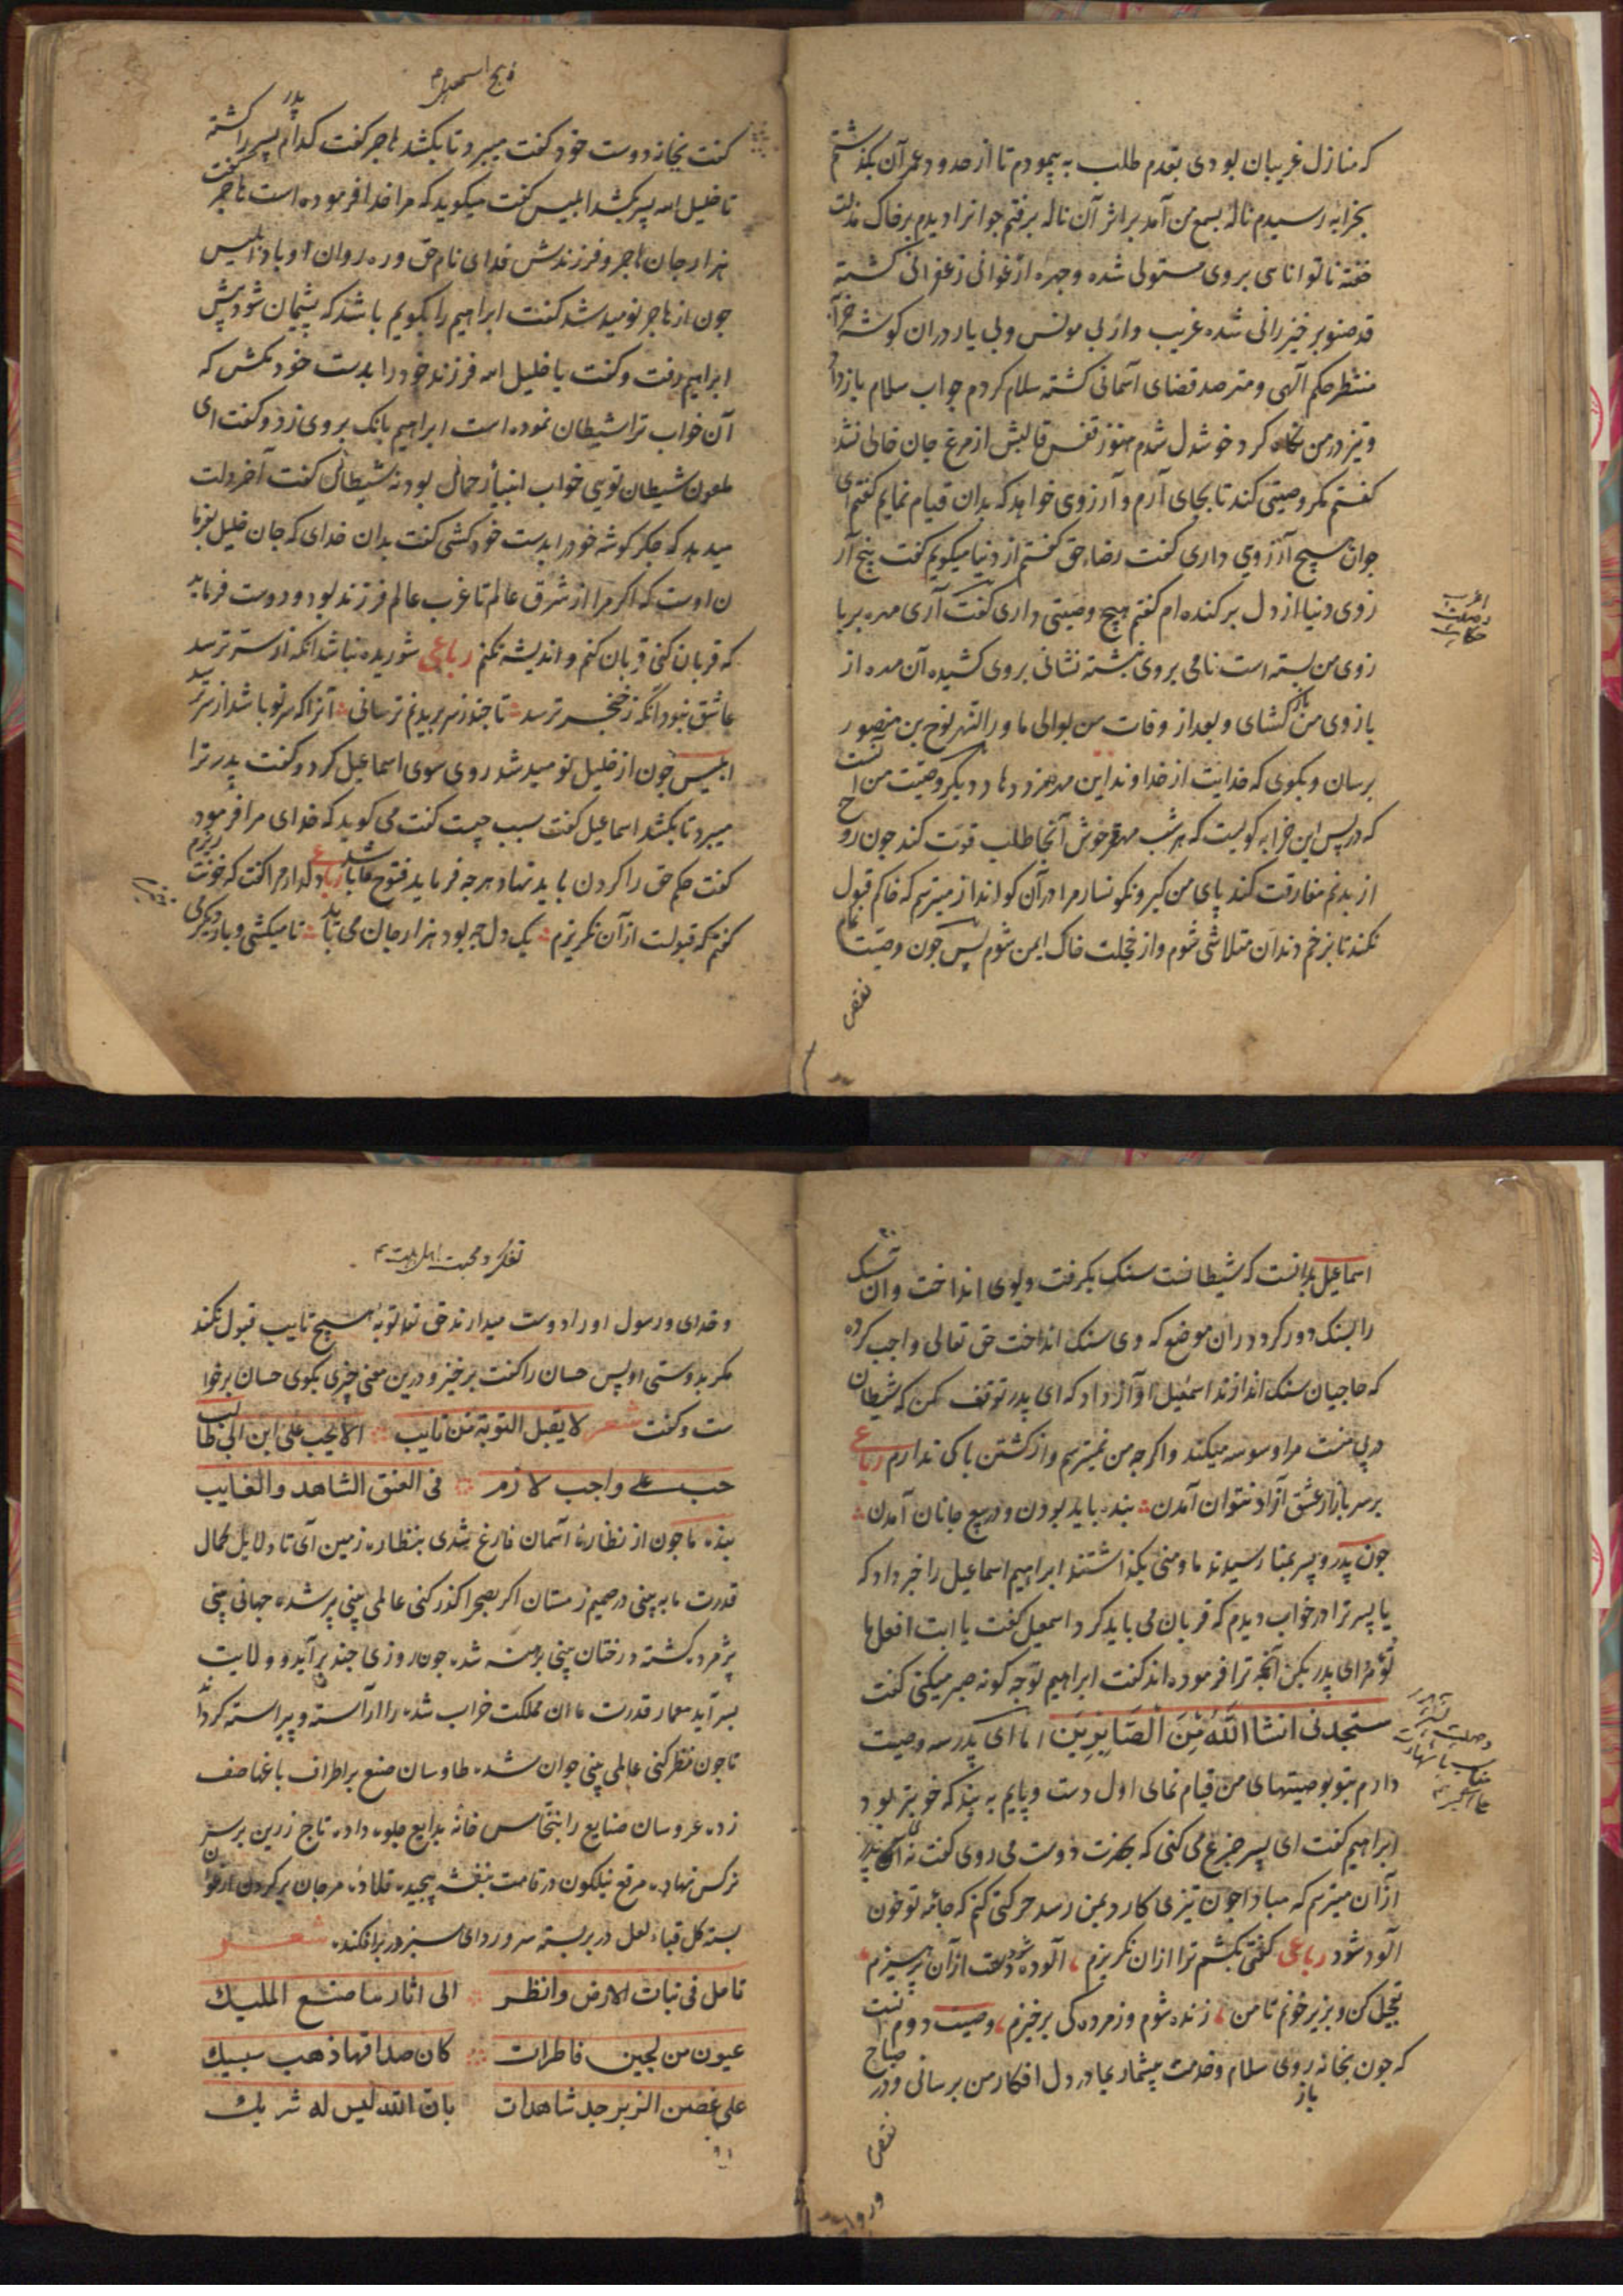 که منازل غریبان بودی بقدم طلب به پیمودم تا از حدود عمرآن بگذشتم
بخرابه رسیدم نالۀ بسمع من آمد بر اثر آن ناله برفتم جوانرا دیدم بر خاک مذلت
خفته ناتوانای بروی مستولی شده و چهره ارغوانی زعفرانی کشته
قد صنوبر خیزرانی شده غریب وار بی مونس و بی یار در ان کوشه خرآبه
منتظر حکم آلهی و مترصد قضای آسمانی کشته سلام کردم جواب سلام باز داد
و تیز در من نگاه کرد خوشدل شدم هنوز قفس قالبش از مرغ جان خالی نشده
کفتم مکر وصیتی کند تا بجای آرم و آرزوی خواهد که بدان قیام نمایم کفتم ای
جوان هیچ آرزوی داری کفت رضاء حق کفتم از دنیا میکویم کفت هیچ آر
زوی دنیا از دل برکنده ام کفتم هیچ وصیتی داری کفت آری مهره بر با
زوی من بسته است نامی بروی نبشته نشانی بروی کشیده آن مهره از
بازوی من باز کشای و بعد از وفات من بوالی ماورالنهر نوح بن منصور
برسان و بکوی که خدایت از خداوند این مهره مزد دهاد و دیکر وصیت من انست
که در پس این خرابه کویست که هر شب آنجا طلب قوت کند چون روح
از بدنم مفارقت کند پای من کیر و نکونسار مرا در آن کو انداز میترسم که خاکم قبول
نکند تا بزخم دندان متلاشی شوم و از خجلت خاک ایمن شوم پس جون وصیت تمام
نقص
ذبح اسمعیل
کفت بخانه دوست خود کفت میبرد تا بکشد هاجر کفت کدام پدر پسر را کشته
تا خلیل الله پسر بکشد ابلیس کفت میکوید که مرا خدا فرموده است هاجر کفت
هزار جان هاجر و فرزندش فدای نام حق و ره روان او باد ابلیس
جون از هاجر نومید شد کفت ابراهیم را بکویم باشد که پشیمان شود پیش
ابراهیم رفت و کفت یا خلیل الله فرزند خود را بدست خود مکش که
آن خواب ترا شیطان نموده است ابراهیم بانک بروی زد و کفت ای
ملعون شیطان تویی خواب انبیا رحمانی بود نه شیطانی کفت آخر دلت
میدهد که جکر کوشه خود را بدست خود کشی کفت بدان خدای که جان خلیل بفرما
ن اوست که اکر مرا از شرق عالم تا غرب عالم فرزند بود و دوست فرماید
که قربان کنی قربان کنم و اندیشه نکنم رباعی شوریده نباشد انکه از سر ترسد
عاشق نبود انکه ز خنجر ترسد تا چند ز سر بریدنم ترسانی آنرا که سر تو باشد از سر ترسد
ابلیس جون از خلیل نومید شد روی سوی اسماعیل کرد و کفت پدر ترا
میبرد تا بکشد اسماعیل کفت سبب چیست کفت می کوید که خدای مرا فرموده
کفت حکم حق را کردن باید نهاد هرچه فرماید فتوح ما باشد رباعی دلدار مرا کفت که خونت ریزم
کفتم که قبولست از آن نکریزم یک دل چه بود هزار جان می باید تا میکشی و بار دیکر
اسماعیل بدانست که شیطانست سنک بکرفت و بوی انداخت و ان سک
را بسنک دور کرد در ان موضع که وی سنک انداخت حق تعالی واجب کرده
که حاجیان سنک اندازند اسمعیل آواز داد که ای پدر توقف مکن که شیطان
در پی منست مرا وسوسه میکند و اکرچه من نمیترسم و از کشتن باک ندارم رباعی
بر سر بازار عشق آزاد نتوان آمدن بنده باید بودن و در بیع جانان آمدن
جون پدر و پسر بمنا رسیدند ما و منی بکذاشتند ابراهیم اسماعیل را خبر داد که
یا پسر ترا در خواب دیدم که قربان می باید کرد اسمعیل کفت یا ابت افعل ما
تؤمر ای پدر بکن آنچه ترا فرموده اند کفت ابراهیم تو چه کونه صبر میکنی کفت
ستجدنی انشا الله من الصابرین اما ای پدر سه وصیت
دارم بتو بوصیتهای من قیام نمای اول دست و پایم به بند که خوبتر بود
ابراهیم کفت ای پسر جزع می کنی که بحضرت دوست می روی کفت نه ای پدر
از آن میترسم که مبادا چون تیزی کارد بمن رسد حرکتی کنم که جامۀ تو خون
آلود شود رباعی کفتی بکشم ترا از ان نکریزم آلوده شود دستت از آن پرهیزم
تعجیل کن و بریز خونم تا من زنده شوم و ز مرده کی برخیزم وصیت دوم انست
که جون بخانه روی سلام و خدمت بیشمار بمادر دل افکار من برسانی و در صباح
باز
نقص
تفکر و محبت اهل بیت
و خدای و رسول او را دوست میدارند حق تعالی توبه هیچ تایب قبول نکند
مکر بدوستی او پس حسان را کفت برخیز و درین معنی چیزی بکوی حسان برخوا
ست و کفت شعر لا یقبل التوبة من تایب الا بحب علی ابن ابی طالب
حب علی واجب لازم فی العنق الشاهد والغایب
بنده ما جون از نظارۀ آسمان فارغ شدی بنظاره زمین آی تا دلایل کمال
قدرت ما به بینی در صمیم زمستان اکر بصحرا کذر کنی عالمی بینی پر شده جهانی بینی
پژمرده کشته درختان بینی برهنه شده جون روزی چند برآید و ولایت
بسر آید معمار قدرت ما ان مملکت خراب شده را آراسته و پیراسته کرداند
تا چون نظر کنی عالمی بینی جوان شده طاوسان صنع بر اطراف باغها صف
زده عروسان صنایع را بنخاس خانۀ بدایع جلوه داده تاج زرین بر سر
نرکس نهاده مرقع نیلکون در قامت بنفشه پیچیده قلادۀ مرجان بر کردن ارغوان
بسته کل قباء لعل در بر بسته سرو ردای سبز در بر افکنده شعر
تامل فی نبات الارض وانظر الی اثار ما صنع الملیک
عیون من لجین فاطرات کان حداقها ذهب سبیک
علی غصن الزبرجد شاهدات بان الله لیس له شریک